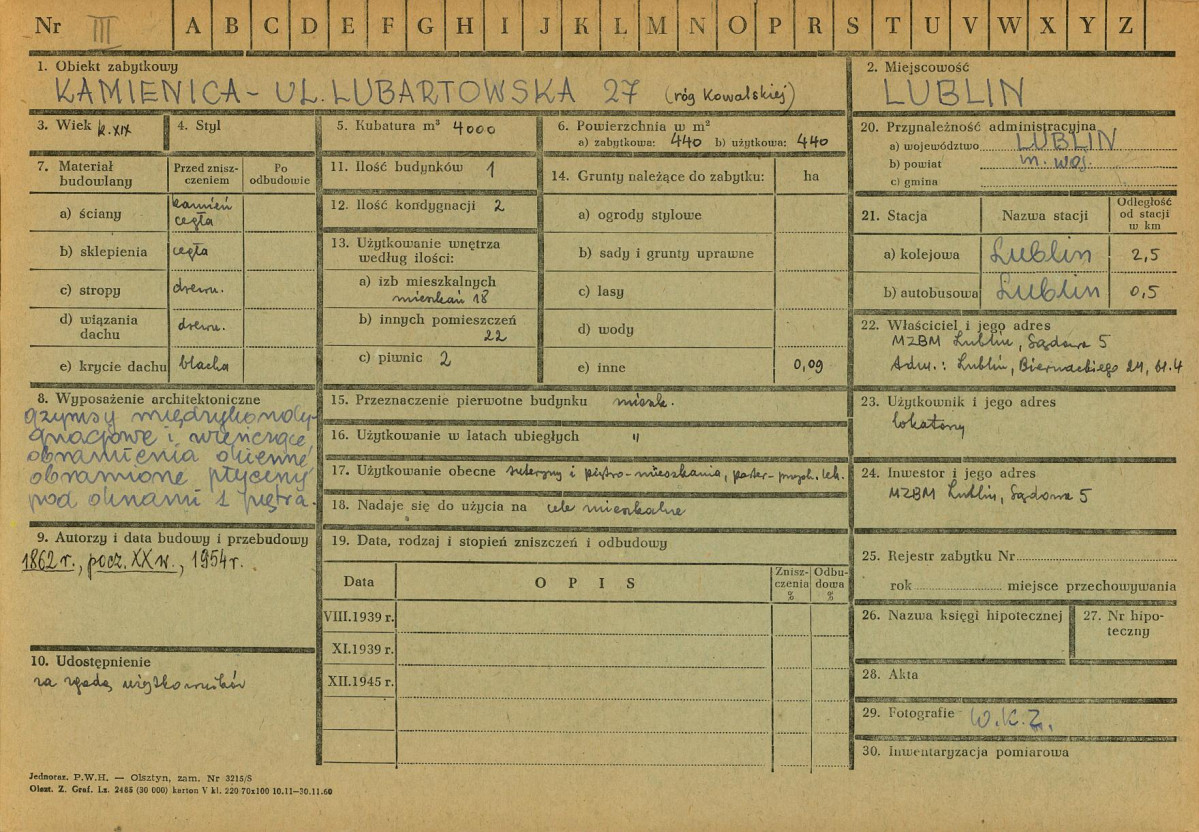 Nr III A B C D E F G H I J K L M N O P R S T U V W X Y Z
1. Obiekt zabytkowy
KAMIENICA - UL. LUBARTOWSKA 27 (róg Kowalskiej)
2. Miejscowość
LUBLIN
3. Wiek k. XIX
4. Styl
5. Kubatura m³ 4000
6. Powierzchnia w m²
a) zabytkowa: 440 b) użytkowa: 440
7. Materiał budowlany
Przed znisz-
czeniem
Po
odbudowie
a) ściany kamień
cegła
b) sklepienia cegła
c) stropy drewn.
d) wiązania
dachu drewn.
e) krycie dachu blacha
8. Wyposażenie architektoniczne
gzymsy międzykondy-
gnacjowe i wieńczące
obramienia okienne
obramione płyciny
pod oknami 1 piętra.
9. Autorzy i data budowy i przebudowy
1862 r., pocz. XX w., 1954 r.
10. Udostępnienie
za zgodą użytkowników
11. Ilość budynków 1
12. Ilość kondygnacji 2
13. Użytkowanie wnętrza
według ilości:
a) izb mieszkalnych
mieszkań 18
b) innych pomieszczeń
22
c) piwnic 2
14. Grunty należące do zabytku: ha
a) ogrody stylowe
b) sady i grunty uprawne
c) lasy
d) wody
e) inne 0,09
15. Przeznaczenie pierwotne budynku mieszk.
16. Użytkowanie w latach ubiegłych "
17. Użytkowanie obecne sutereny i piętro - mieszkania, parter - przych. lek.
18. Nadaje się do użycia na cele mieszkalne
19. Data, rodzaj i stopień zniszczeń i odbudowy
Data OPIS Znisz-
czenia
% Odbu-
dowa
%
VIII.1939 r.
XI.1939 r.
XII.1945 r.
20. Przynależność administracyjna
a) województwo LUBLIN
b) powiat m. woj.
c) gmina
21. Stacja Nazwa stacji Odległość
od stacji
w km
a) kolejowa Lublin 2,5
b) autobusowa Lublin 0,5
22. Właściciel i jego adres
MZBM Lublin, Sądowa 5
Adm.: Lublin, Biernackiego 24, bl. 4
23. Użytkownik i jego adres
lokatorzy
24. Inwestor i jego adres
MZBM Lublin, Sądowa 5
25. Rejestr zabytku Nr
rok miejsce przechowywania
26. Nazwa księgi hipotecznej
27. Nr hipo-
teczny
28. Akta
29. Fotografie W.K.Z.
30. Inwentaryzacja pomiarowa
Jednoraz. P.W.H. — Olsztyn, zam. Nr 3215/S
Olszt. Z. Graf. Lz. 2485 (30 000) karton V kl. 220 70x100 10.11—30.11.60